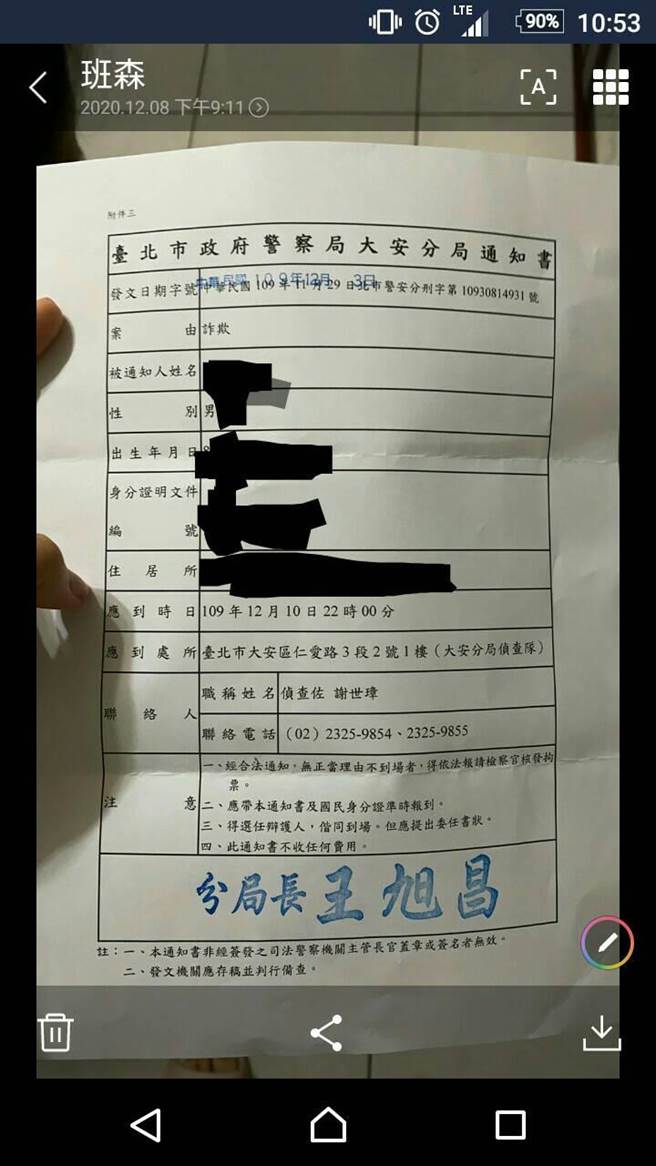 LTE
90%
10:53
班森
2020.12.08 下午9:11
A
附件三
臺北市政府警察局大安分局通知書
中華民國 109年12月 3日
發文日期字號 中華民國 109 年 11 月 29 日北市警安分刑字第 10930814931 號
案由 詐欺
被通知人姓名
性別 男
出生年月日
身分證明文件
編號
住居所
應到時日 109 年 12 月 10 日 22 時 00 分
應到處所 臺北市大安區仁愛路 3 段 2 號 1 樓（大安分局偵查隊）
聯絡人
職稱姓名 偵查佐 謝世璋
聯絡電話 （02）2325-9854、2325-9855
注意
一、經合法通知，無正當理由不到場者，得依法報請檢察官核發拘
票。
二、應帶本通知書及國民身分證準時報到。
三、得選任辯護人，偕同到場。但應提出委任書狀。
四、此通知書不收任何費用。
分局長王旭昌
註：一、本通知書非經簽發之司法警察機關主管長官蓋章或簽名者無效。
二、發文機關應存稿並判行備查。